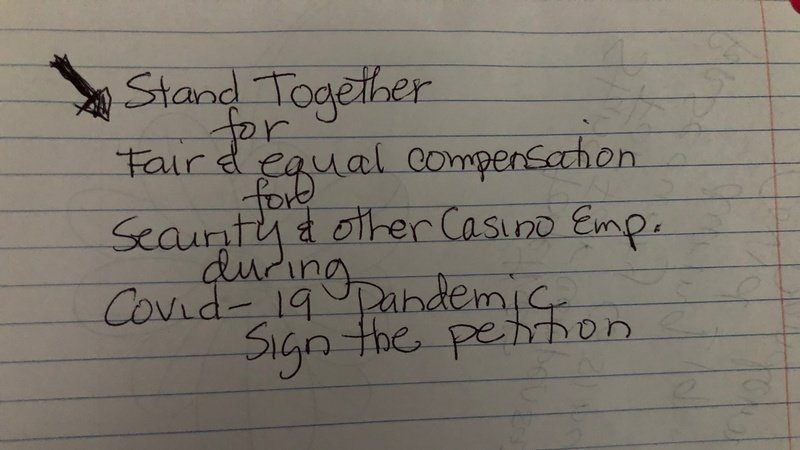 Stand Together
for
Fair & equal compensation
for
Security & other Casino Emp.
during
Covid-19 Pandemic
Sign the petition